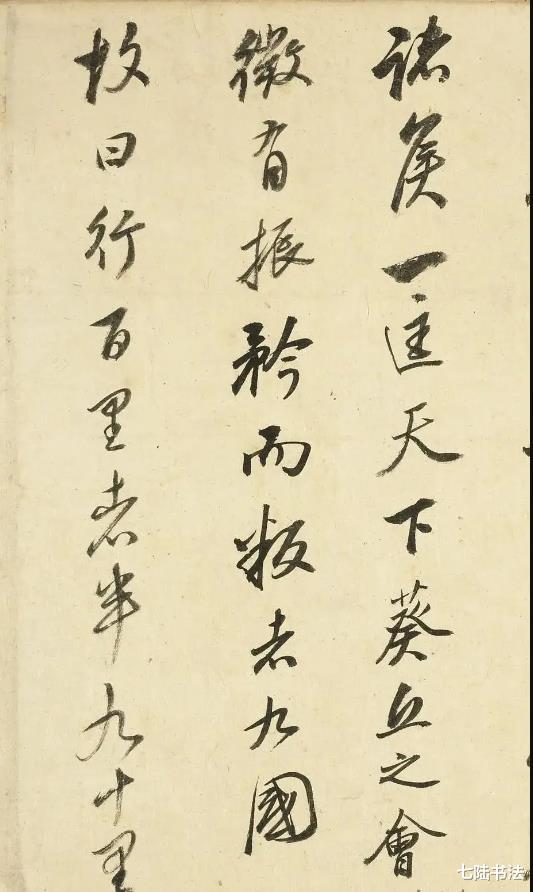 諸侯一匡天下葵丘之會
微有振矜而叛者九國
故曰行百里者半九十里
七陆书法